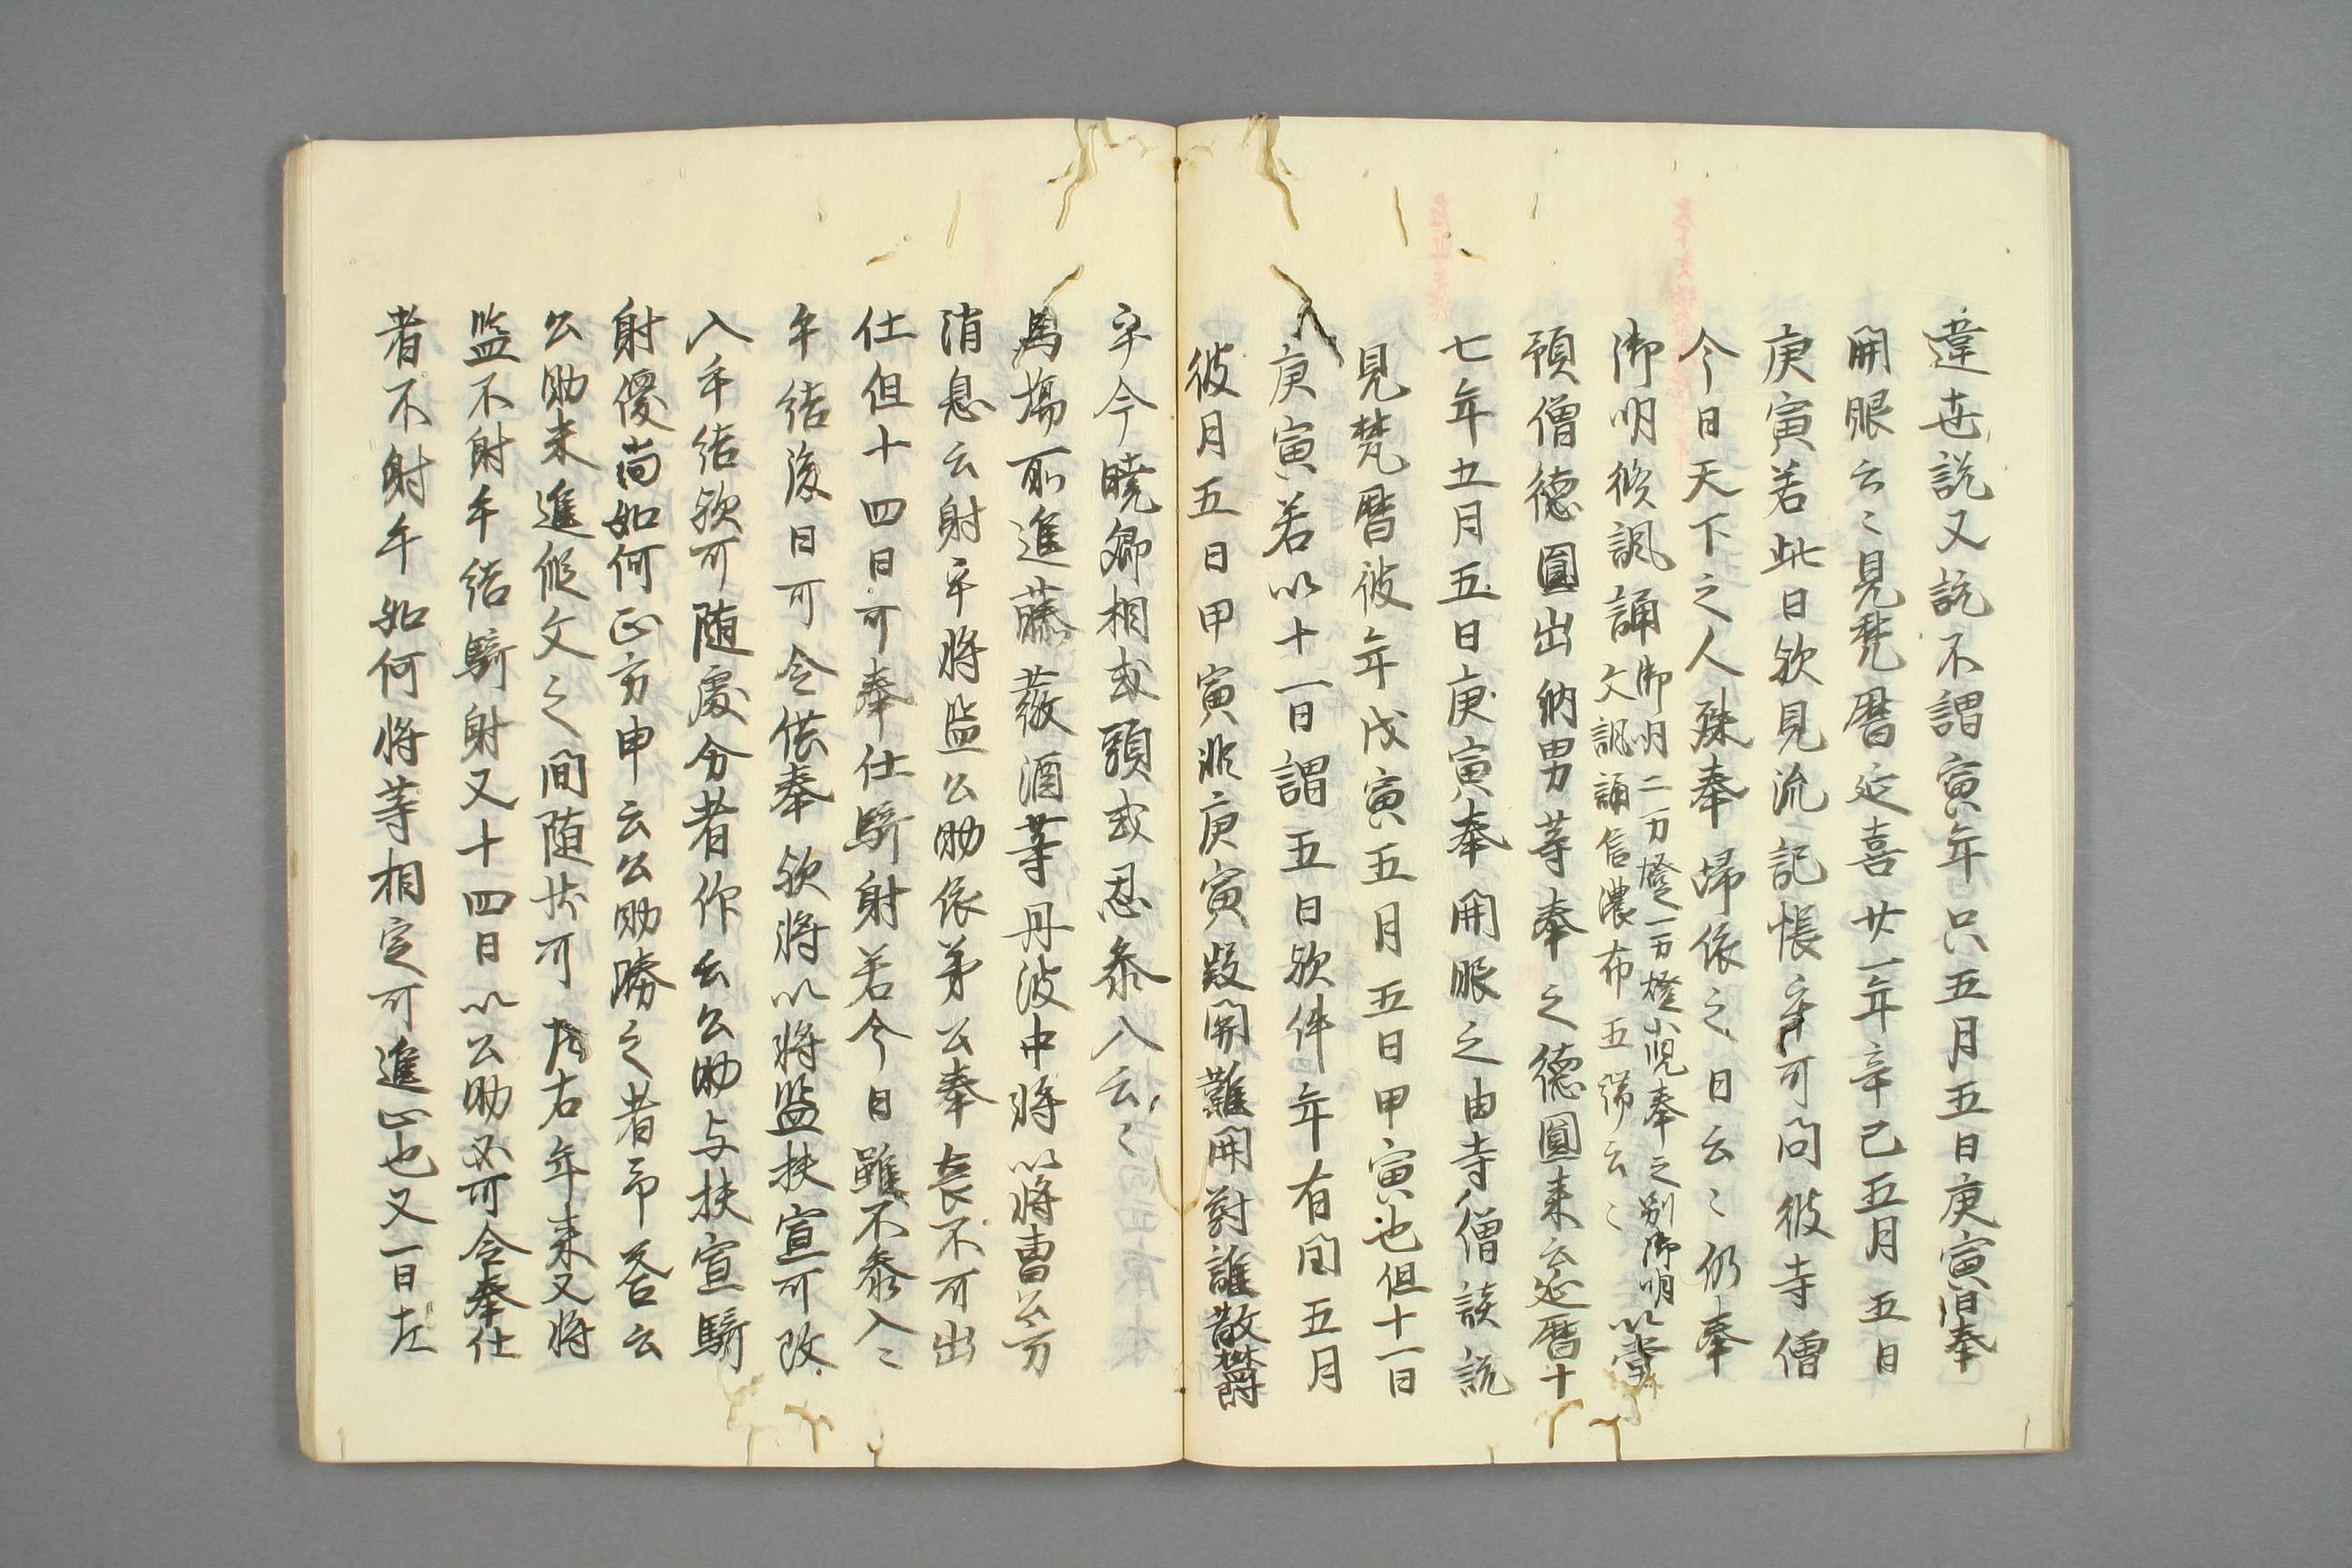 違世説又説不謂寅年只五月五日庚寅日奉
開眼云〻見梵暦延喜廿一年辛巳五月五日
庚寅若此日欤見流記帳年可問彼寺僧
今日天下之人殊奉帰依之日云〻仍奉
御明修諷誦御明二万燈一万燈小児奉之別御明以當
文諷誦信濃布五端云〻
預僧德圓出納男等奉之德圓来云延暦十
七年五月五日庚寅奉開眼之由寺僧談説
見梵暦彼年戊寅五月五日甲寅也但十一日
庚寅若以十一日謂五日欤件年有閏五月
彼月五日甲寅非庚寅疑開難開對誰散欝
卒今曉卿相或頭或忍参入云〻
馬場所進藤薮酒等丹波中将以将曹公方
消息云射手将監公助依弟公奉喪不可出
仕但十四日可奉仕騎射若今日雖不参入〻
手結後日可令供奉欤将以将監扶宣可改
入手結欤可随處分者作云公助与扶宣騎
射優尚如何正方申云公助勝之者示答云
公助来進假文之間随状可左右年来又将
監不射手結騎射又十四日以公助必可令奉仕
者不射手如何将等相定可進止也又一日左